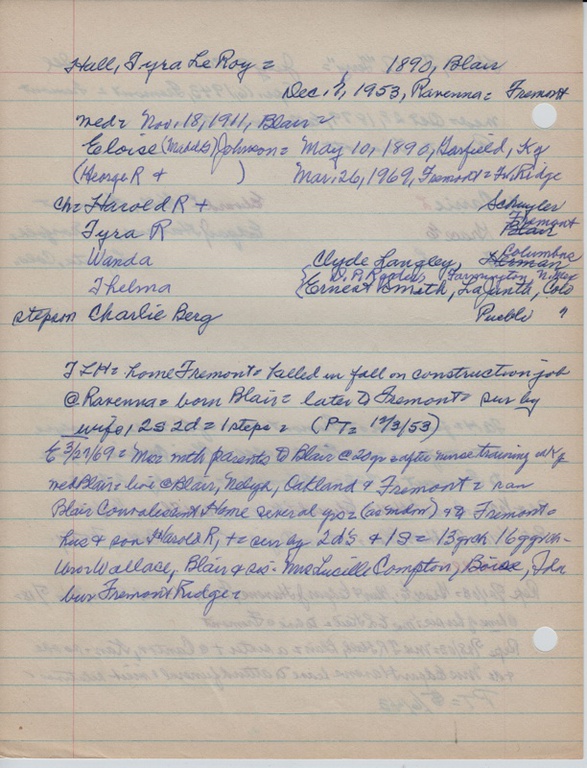 Hall, Tyra LeRoy = , 1890, Blair
Dec. 1, 1953, Ravenna = Fremont
med = Nov. 18, 1911, Blair =
Eloise (Middle) Johnson = May 10, 1890, Garfield, Ky
(George R + ) Mar. 26, 1969, Fremont = Fr. Ridge
Ch = Harold R + Schuyler
Fremont
Tyra R Blair
Columbus
Wanda Clyde Langley, Herman
D. P. Rogers, Farmington N. Mex
Thelma Ernest Smith, LaJunta, Colo
stepson Charlie Berg Pueblo "
TLH = home Fremont = killed in fall on construction job
@ Ravenna = born Blair = later to Fremont = sur by
wife, 2s 2d = 1 steps = (PT = 12/3/53)
E 3/27/69 = Mov. with parents to Blair @ 20 yr = after nurse training
med Blair = live @ Blair, Oakland & Fremont = ran
Blair Convalescent Home several yrs = & Fremont =
hus & son Harold R, + = sur by 2ds & 1s = 13 grch 16 ggrch =
bro Wallace, Blair & sis - Mrs Lucille Compton, Boise, Idaho
bur Fremont Ridge =